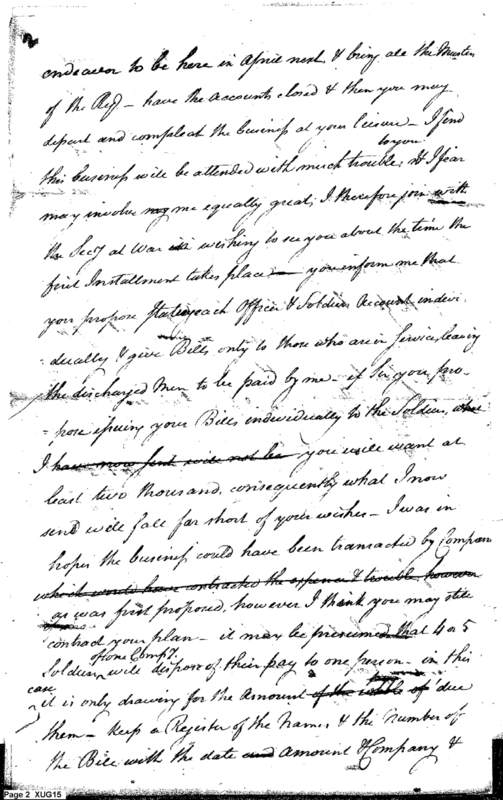 2
endeavor to be here in April next & bring all the Muster
of the Regt — have the accounts closed & then you may
depart and compleat the business at your leisure — I find
this business will be attended with much trouble to you, & I fear
may involve my me equally great, I therefore join with
the Secy at War in wishing to see you about the time the
first Installment takes place — you inform me that
you propose stating each Officer & Soldiers Account indivi-
dually & give Bills only to those who are in Service, leaving
the discharged Men to be paid by me — if Sir you pro-
-pose issuing your Bills individually to the Soldiers,
I have now sent will not be you will want at
least two thousand, consequently what I now
send will fall far short of your wishes — I was in
hopes the business could have been transacted by Compan
which would have contracted the expence & trouble, however
as was first proposed, however I think you may still
contract your plan — it may be presumed that 4 or 5
Soldiers of one Compy. will dispose of their pay to one person — in this
case it is only drawing for the Amount of the whole of due
them — keep a Register of the Names & the Number of
the Bill with the date and Amount & Company &
Page 2 XUG15